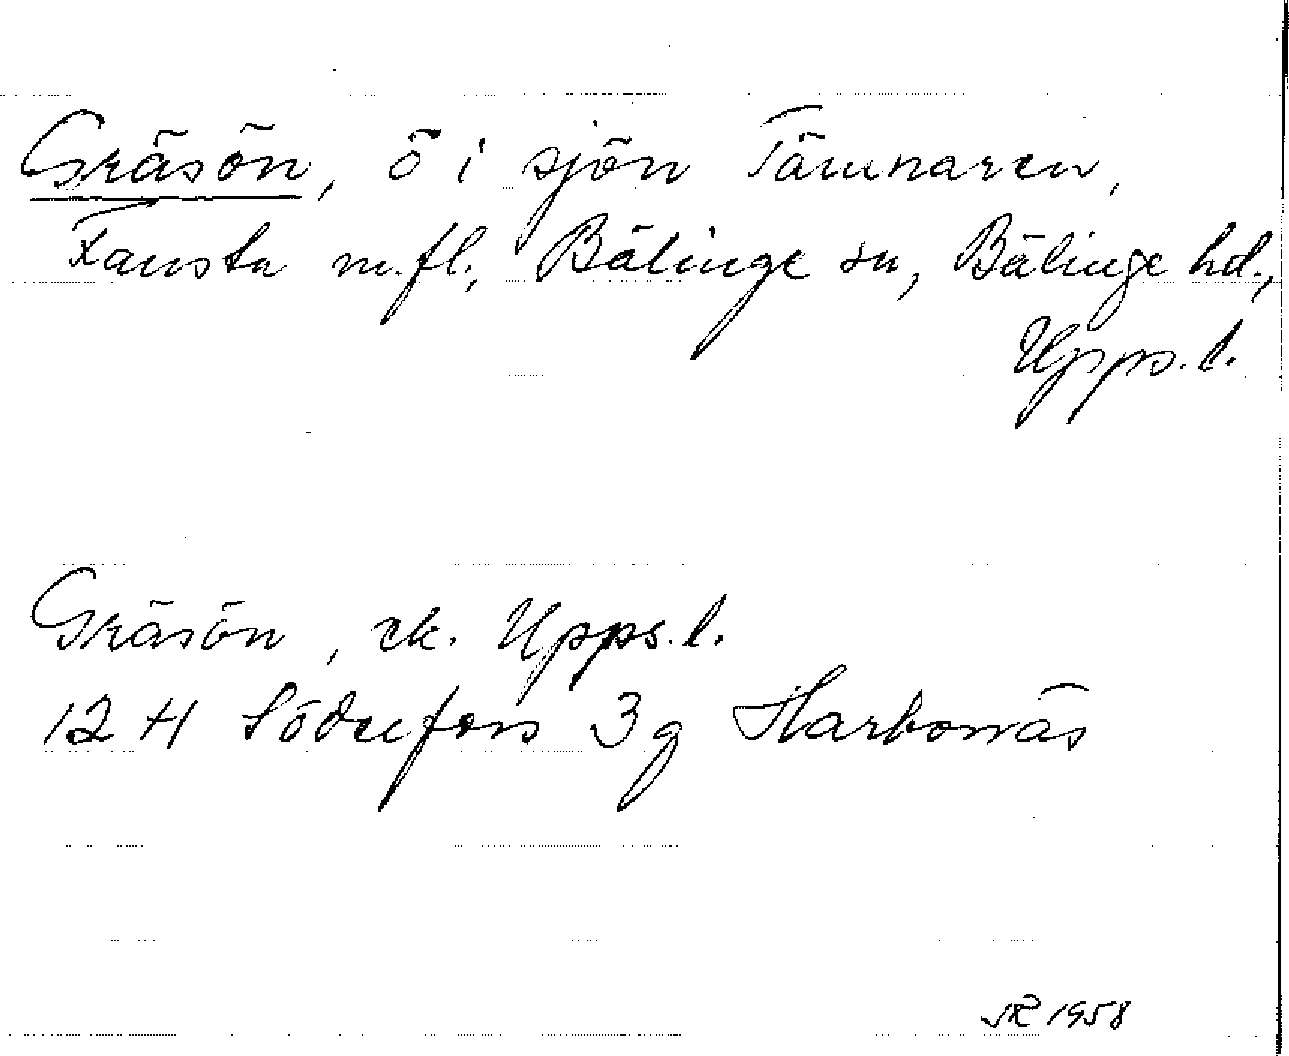 Gräsön, ö i sjön Tämnaren,
Fansta m.fl., Bälinge sn, Bälinge hd.,
Upps.l.
Gräsön, ek. Upps.l.
12 H Söderfors 3g Harbonäs
1958